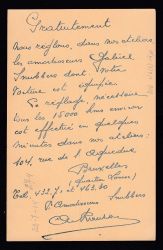 Gratuitement
Nous réglons, dans nos ateliers
les amortisseurs Gabriel
Snubbers dont votre
voiture est équipée.
Ce réglage, nécessaire
tous les 15000 kms environ
est effectué en quelques
minutes dans nos ateliers:
104, rue de l'Aqueduc
Bruxelles
(Quartier Louise)
Tél. 432.71 et 463.30
Amortisseurs Snubbers